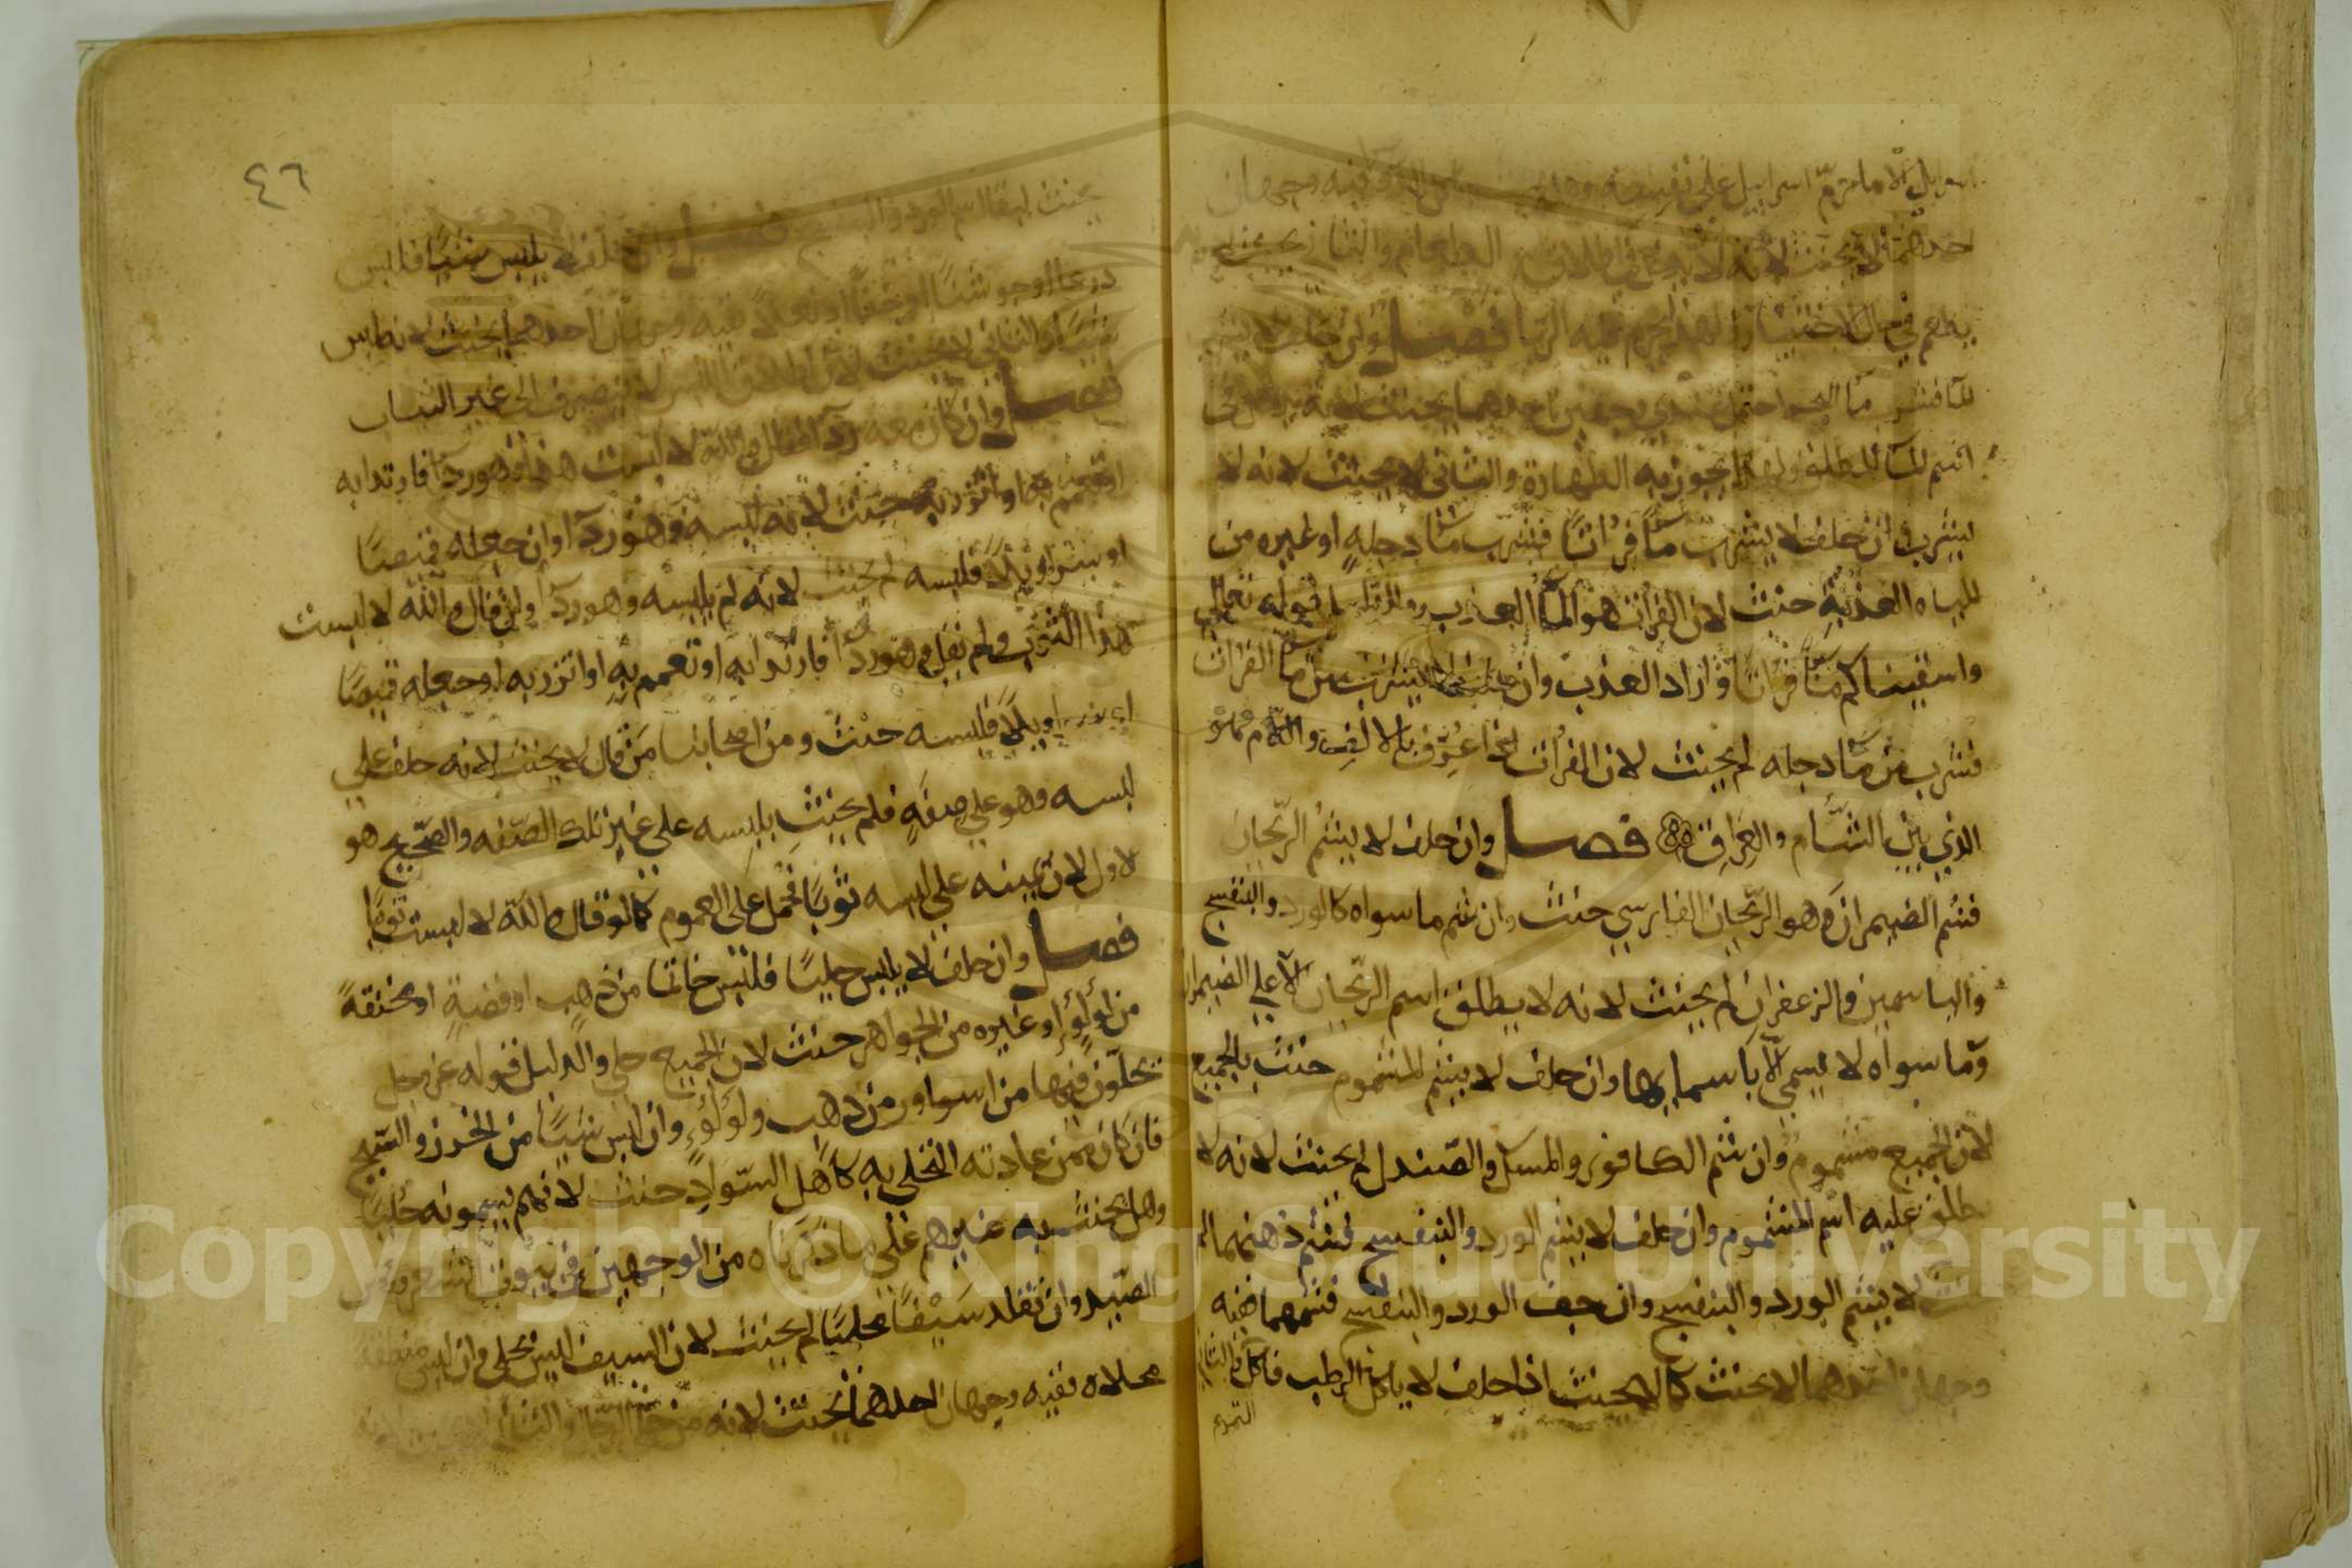 اسرايل الا ما حرم اسرايل على نفسه وهل فيه وجهان
احدهما لا يحنث لانه لا يدخل في اطلاق الطعام والثاني يحنث لانه
يطعم في حال الاختيار ولهذا يحرم فيه الربا فصل وان حلف لا يشرب
الما فشرب ما البحر احتمل عندي وجهين احدهما يحنث لانه يدخل في
اسم الما المطلق ولهذا يجوز به الطهارة والثاني لا يحنث لانه لا
يشرب وان حلف لا يشرب ما فراتا فشرب ما دجلة او غيره من
المياه العذبة حنث لان الفرات هو الما العذب والدليل قوله تعالى
واسقيناكم ما فراتا واراد العذب وان حلف لا يشرب من ما الفرات
فشرب من ما دجله لم يحنث لان الفرات اذا عرف بالالف واللام فهو
الذي بين الشام والعراق فصل وان حلف لا يشم الريحان
فشم الضيمران وهو الريحان الفارسي حنث وان شم ما سواه كالورد والبنفسج
والياسمين والزعفران لم يحنث لانه لا يطلق اسم الريحان الا على الضيمران
وما سواه لا يسمى الا باسمايها وان حلف لا يشم المشموم حنث بالجميع
لان الجميع مشموم وان شم الكافور والمسك والصندل لم يحنث لانه لا
يطلق عليه اسم المشموم وان حلف لا يشم الورد والبنفسج فشم دهنهما لم
يحنث لانه لا يشم الورد والبنفسج وان جف الورد والبنفسج فشمهما ففيه
وجهان احدهما لا يحنث كما لا يحنث اذا حلف لا ياكل الرطب فاكل
التمر
٤٦
يحنث لبقا اسم الورد والبنفسج فصل وان حلف لا يلبس شيا فلبس
درعا او جوشنا او خفا او نعلا ففيه وجهان احدهما يحنث لانه لبس
شيا والثاني لا يحنث لان اطلاق اللبس لا ينصرف الى غير الثياب
فصل وان كان معه ردا فقال والله لا لبست هذا وهو ردا فارتدا به
او تعمم به او اتزر به حنث لانه لبسه وهو ردا وان جعله قميصا
او سراويلا فلبسه لم يحنث لانه لم يلبسه وهو ردا وان قال والله لا لبست
هذا الثوب ولم يقل وهو ردا فارتدا به او تعمم به او اتزر به او جعله قميصا
او سراويلا فلبسه حنث ومن اصحابنا من قال لا يحنث لانه حلف على
لبسه وهو على صفة فلم يحنث بلبسه على غير تلك الصفه والصحيح هو
الاول لان يمينه على لبسه ثوبا فحمل على العموم كما لو قال والله لا لبست ثوبا
فصل وان حلف لا يلبس حليا فلبس خاتما من ذهب او فضة او مخنقة
من لولو او غيره من الجواهر حنث لان الجميع حلي والدليل قوله عز وجل
يحلون فيها من اساور من ذهب ولولو وان لبس شيا من الخرز والسبج
فان كان ممن عادته التحلي به كاهل السواد حنث لانهم يسمونه حليا
وهل يحنث به غيرهم على ما ذكرناه من الوجهين في بيوت الشعر وروس
الصيد وان تقلد سيفا محليا لم يحنث لان السيف ليس بحلي وان لبس منطقة
محلاه ففيه وجهان احدهما يحنث لانه من حلي الرجال والثاني لا يحنث لانه
Copyright © King Saud University